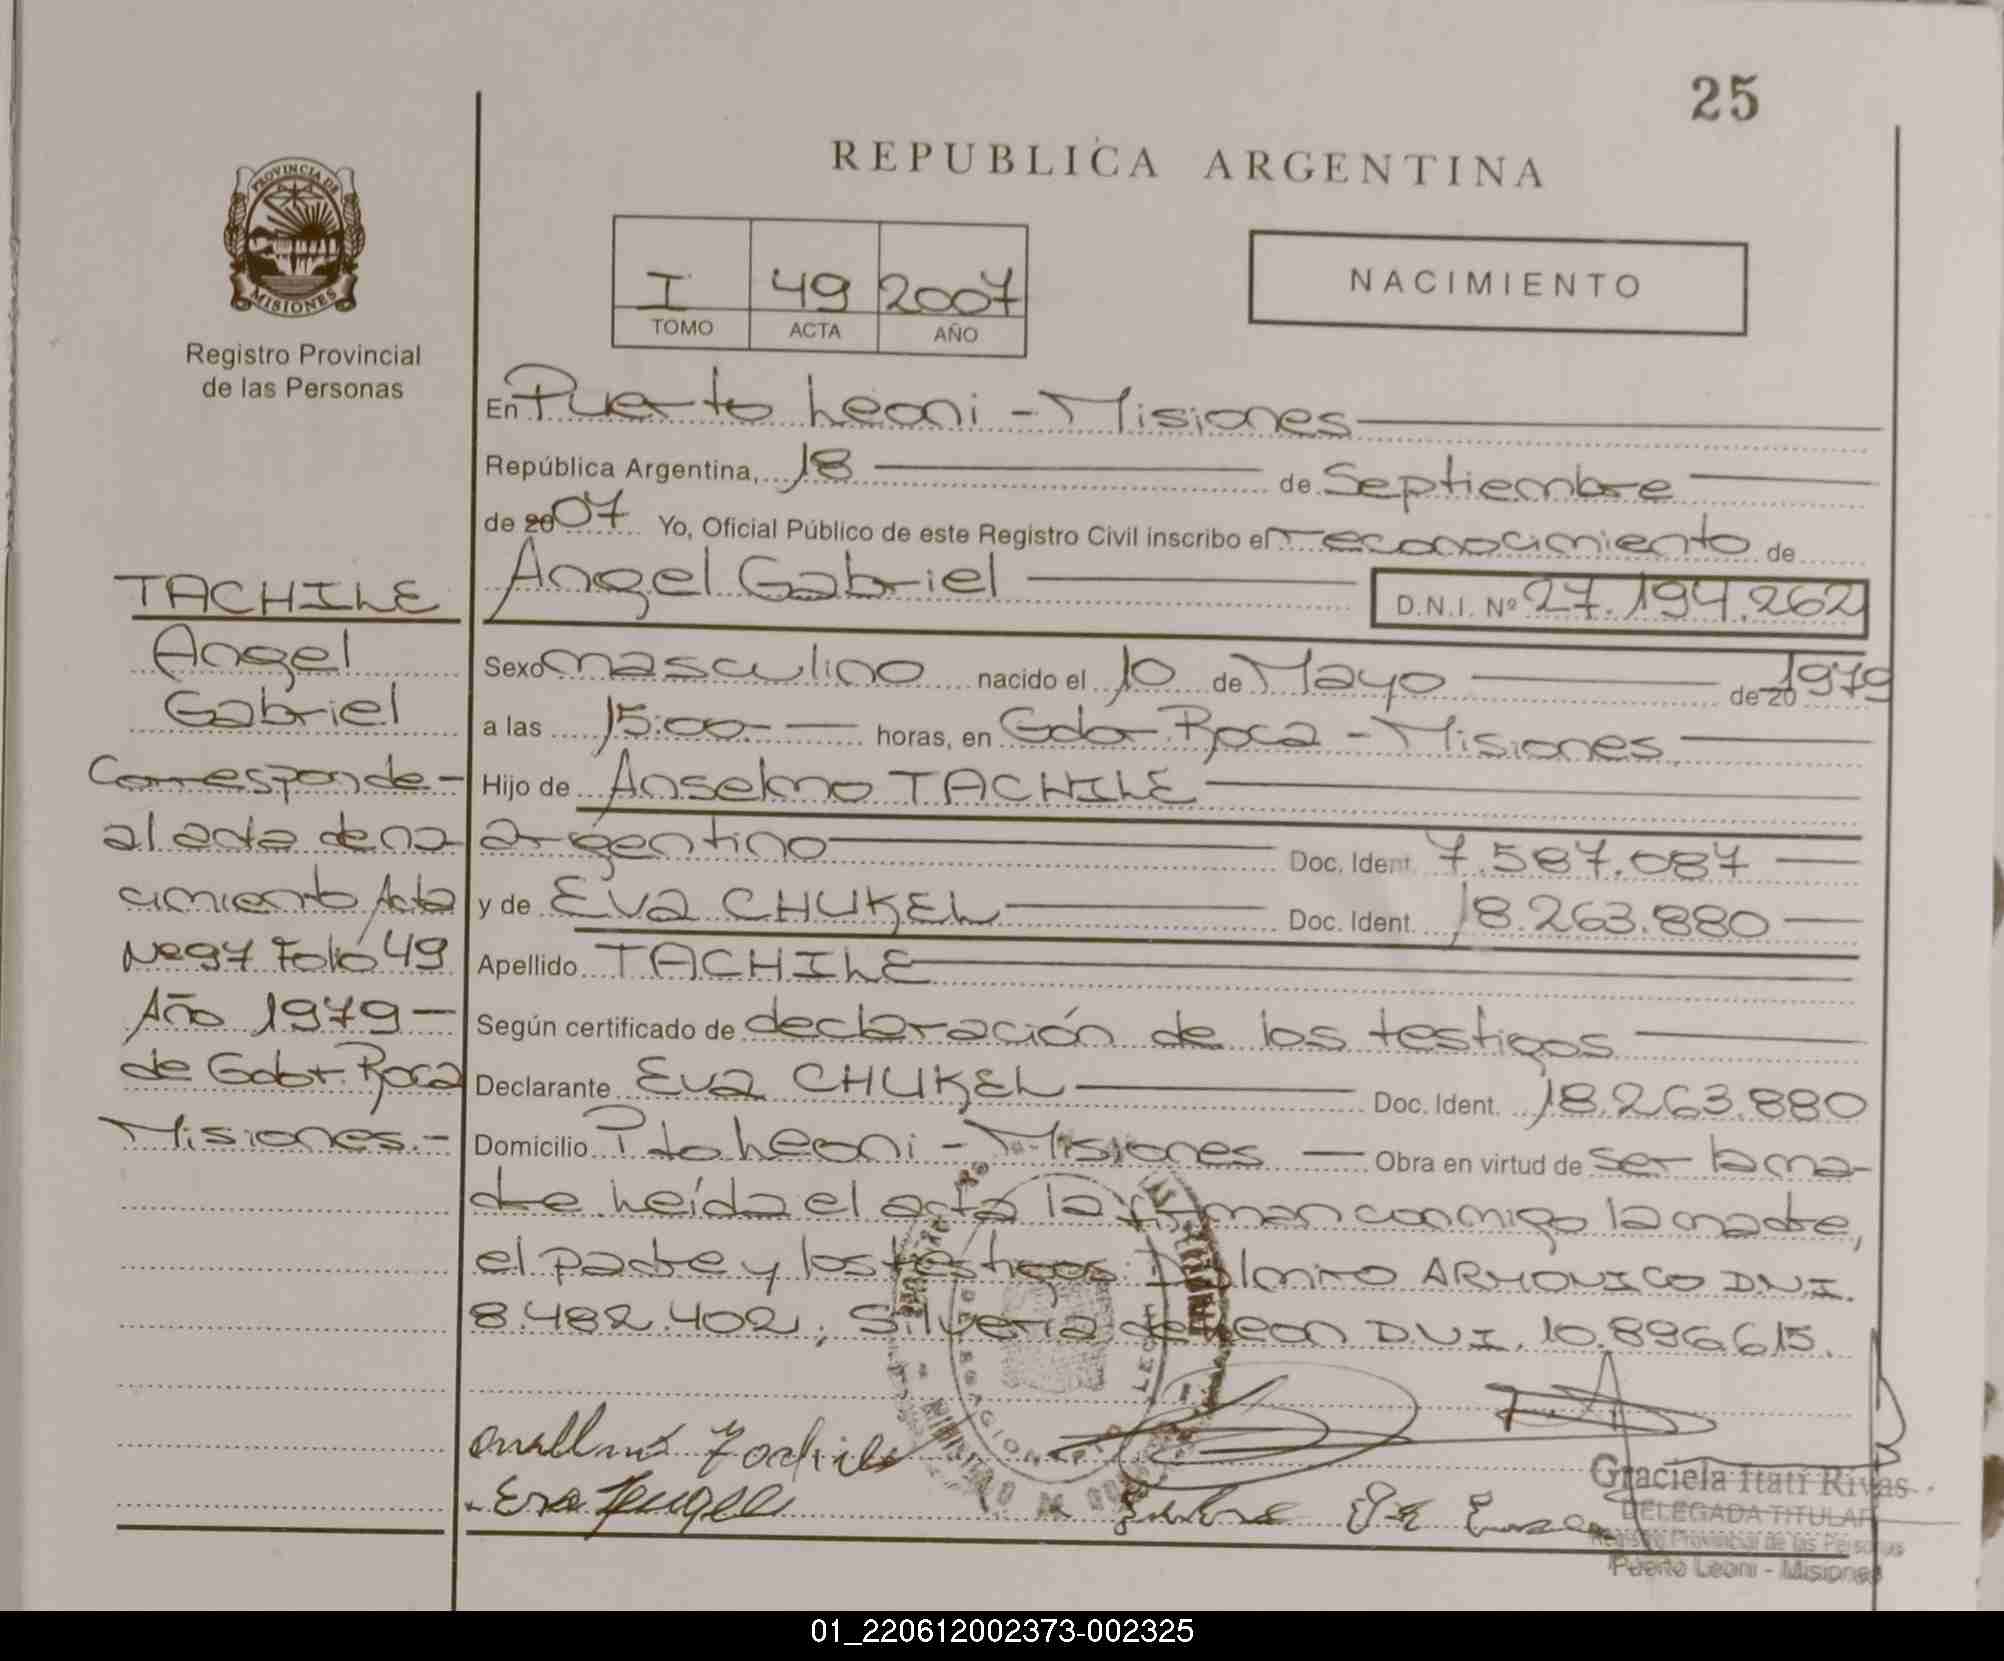 25
REPUBLICA ARGENTINA
PROVINCIA DE
MISIONES
Registro Provincial
de las Personas
I 49 2007
TOMO ACTA AÑO
NACIMIENTO
En Puerto Leoni - Misiones
República Argentina, 18 de Septiembre
de 2007 Yo, Oficial Público de este Registro Civil inscribo el reconocimiento de
Angel Gabriel D.N.I. Nº 27.194.262
Sexo masculino nacido el 10 de Mayo de 20 1979
a las 15:00 - horas, en Gdor. Roca - Misiones
Hijo de Anselmo TACHILE
argentino Doc. Ident. 7.587.087
y de Eva CHUKEL Doc. Ident. 18.263.880
Apellido TACHILE
Según certificado de declaración de los testigos
Declarante Eva CHUKEL Doc. Ident. 18.263.880
Domicilio Pto Leoni - Misiones Obra en virtud de ser la ma-
dre. Leída el acta la firman conmigo la madre,
el padre y los testigos: Dalmiro ARMONICO D.N.I.
8.482.402, Silveria de Leon D.N.I. 10.896.615.
TACHILE
Angel
Gabriel
Corresponde -
al acta de na-
cimiento Acta
Nº 97 Folio 49
Año 1979 -
de Gdor. Roca
Misiones.-
Graciela Itatí Rivas
DELEGADA TITULAR
Registro Provincial de las Personas
Puerto Leoni - Misiones
01_220612002373-002325